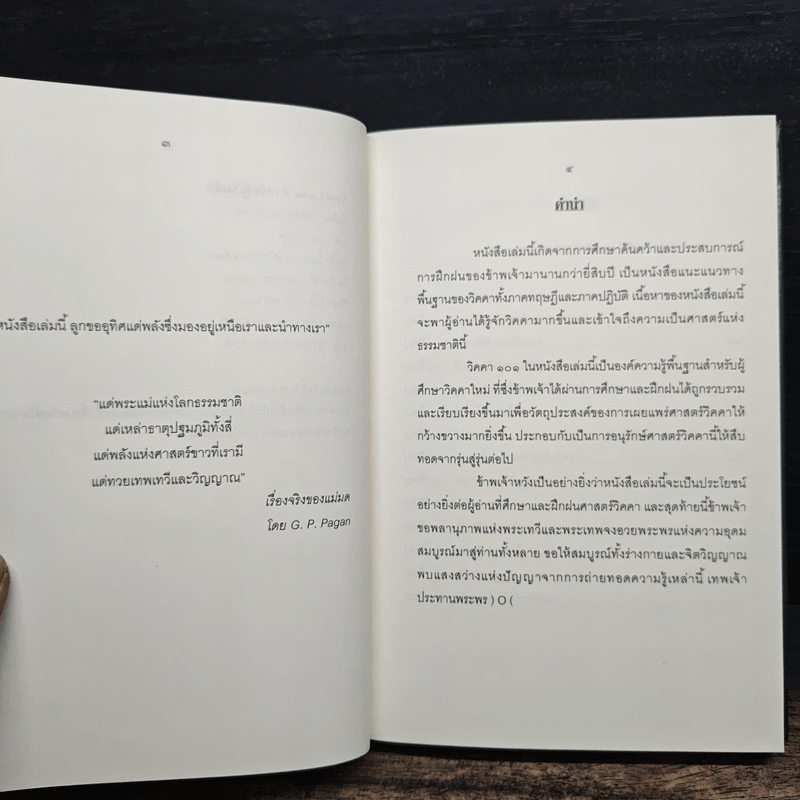 ๓
หนังสือเล่มนี้ ลูกขออุทิศแด่พลังซึ่งมองอยู่เหนือเราและนำทางเรา"
"แด่พระแม่แห่งโลกธรรมชาติ
แด่เหล่าธาตุปฐมภูมิทั้งสี่
แด่พลังแห่งศาสตร์ขาวที่เรามี
แด่ทวยเทพเทวีและวิญญาณ"
เรื่องจริงของแม่มด
โดย G. P. Pagan
๕
คำนำ
หนังสือเล่มนี้เกิดจากการศึกษาค้นคว้าและประสบการณ์
การฝึกฝนของข้าพเจ้ามานานกว่ายี่สิบปี เป็นหนังสือแนะแนวทาง
พื้นฐานของวิคคาทั้งภาคทฤษฎีและภาคปฏิบัติ เนื้อหาของหนังสือเล่มนี้
จะพาผู้อ่านได้รู้จักวิคคามากขึ้นและเข้าใจถึงความเป็นศาสตร์แห่ง
ธรรมชาตินี้
วิคคา ๑๐๑ ในหนังสือเล่มนี้เป็นองค์ความรู้พื้นฐานสำหรับผู้
ศึกษาวิคคาใหม่ ที่ซึ่งข้าพเจ้าได้ผ่านการศึกษาและฝึกฝนได้ถูกรวบรวม
และเรียบเรียงขึ้นมาเพื่อวัตถุประสงค์ของการเผยแพร่ศาสตร์วิคคาให้
กว้างขวางมากยิ่งขึ้น ประกอบกับเป็นการอนุรักษ์ศาสตร์วิคคานี้ให้สืบ
ทอดจากรุ่นสู่รุ่นต่อไป
ข้าพเจ้าหวังเป็นอย่างยิ่งว่าหนังสือเล่มนี้จะเป็นประโยชน์
อย่างยิ่งต่อผู้อ่านที่ศึกษาและฝึกฝนศาสตร์วิคคา และสุดท้ายนี้ข้าพเจ้า
ขอพลานุภาพแห่งพระเทวีและพระเทพจงอวยพระพรแห่งความอุดม
สมบูรณ์มาสู่ท่านทั้งหลาย ขอให้สมบูรณ์ทั้งร่างกายและจิตวิญญาณ
พบแสงสว่างแห่งปัญญาจากการถ่ายทอดความรู้เหล่านี้ เทพเจ้า
ประทานพระพร ) O (